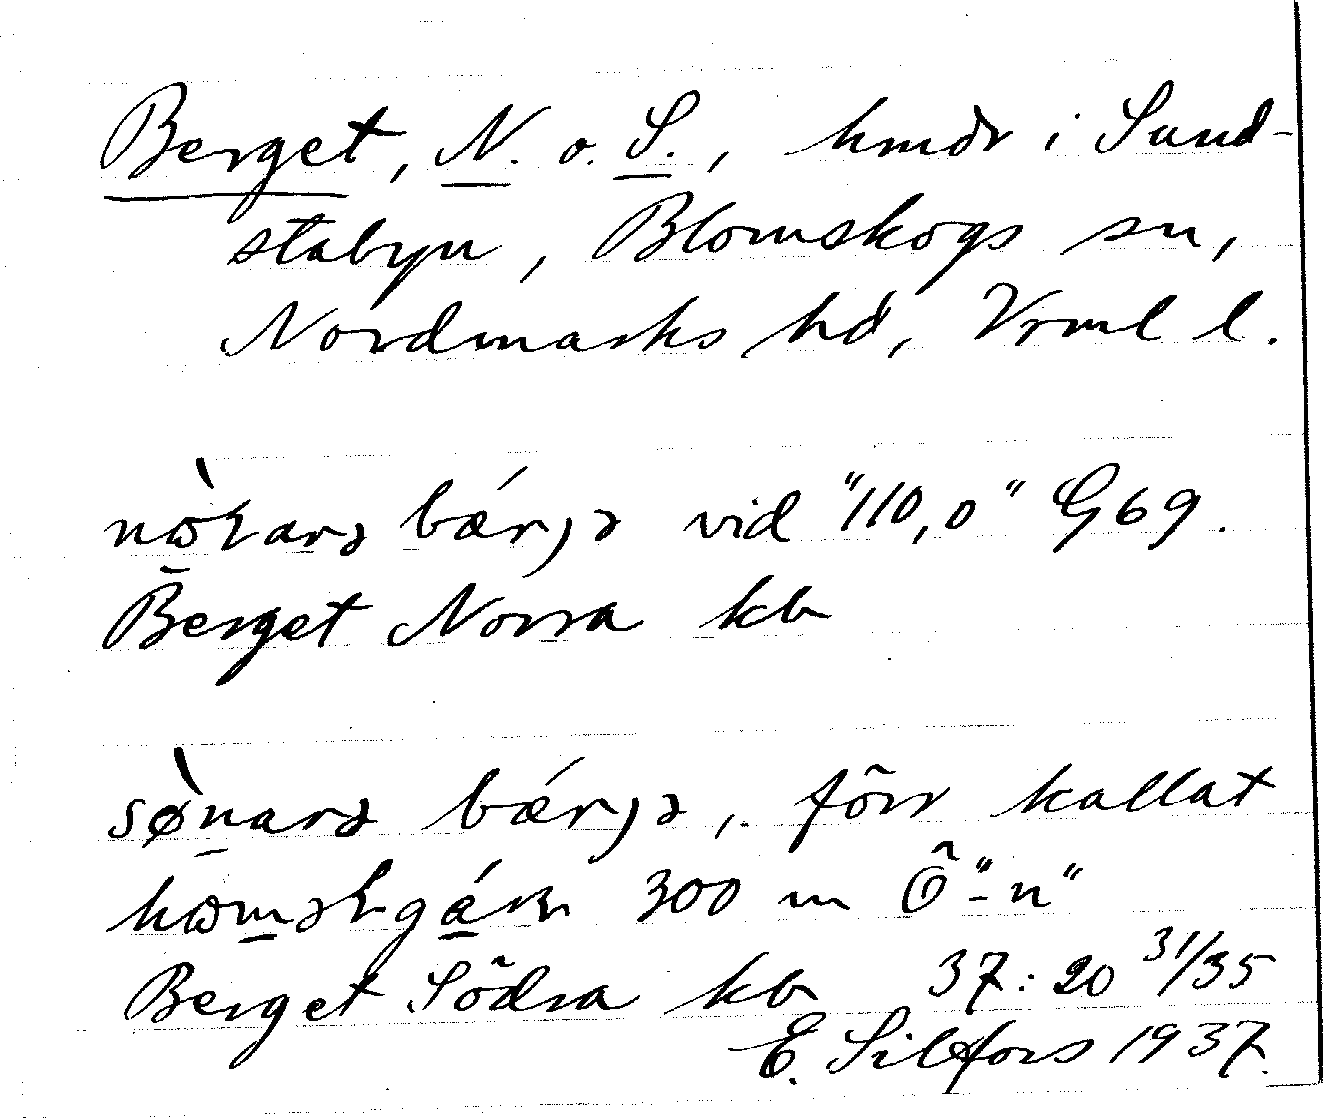 Berget, N. o. S., hmdr i Sund-
stabyn, Blomskogs sn,
Nordmarks hd, Vrml l.
bǽrjə vid "110,0" G69.
Berget Norra kb
bǽrjə, förr kallat
300 m Ö "-n"
Berget Södra kb 37:20 31/35
E. Silfors 1937.